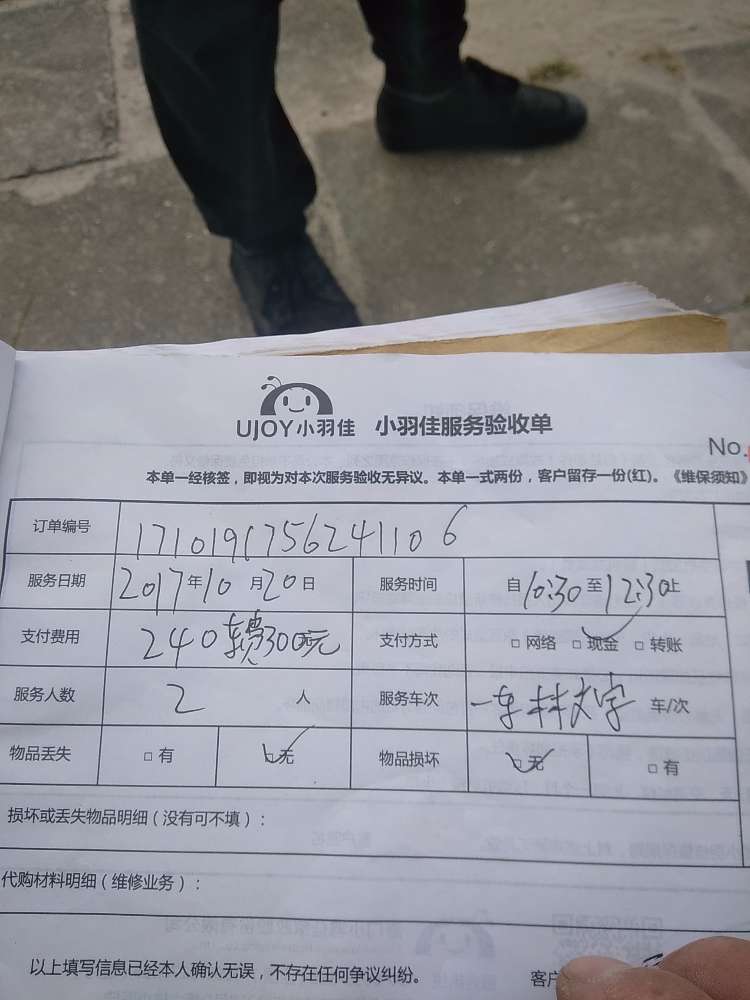 UJOY小羽佳 小羽佳服务验收单
No.
本单一经核签，即视为对本次服务验收无异议。本单一式两份，客户留存一份(红)。《维保须知》
订单编号 171019175624110 6
服务日期 2017年10月20日 服务时间 自10:30至12:30止
支付费用 240 车费300元 支付方式 □网络 □现金 □转账
服务人数 2 人 服务车次 一车 林文字 车/次
物品丢失 □有 □无 物品损坏 □无 □有
损坏或丢失物品明细（没有可不填）：
代购材料明细（维修业务）：
以上填写信息已经本人确认无误，不存在任何争议纠纷。 客户